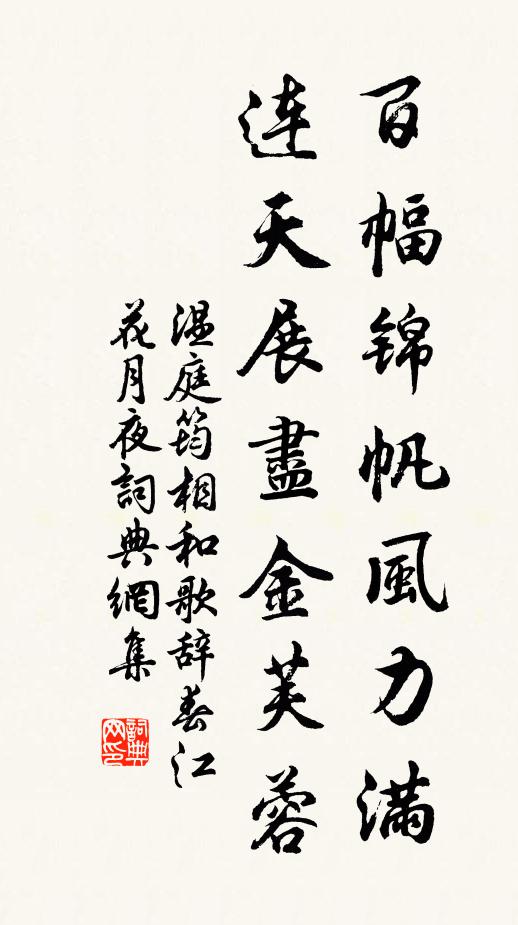 百幅锦帆風力满
連天展盡金芙蓉
温庭筠相和歌辞春江
花月夜詞典網集
詞典
网印